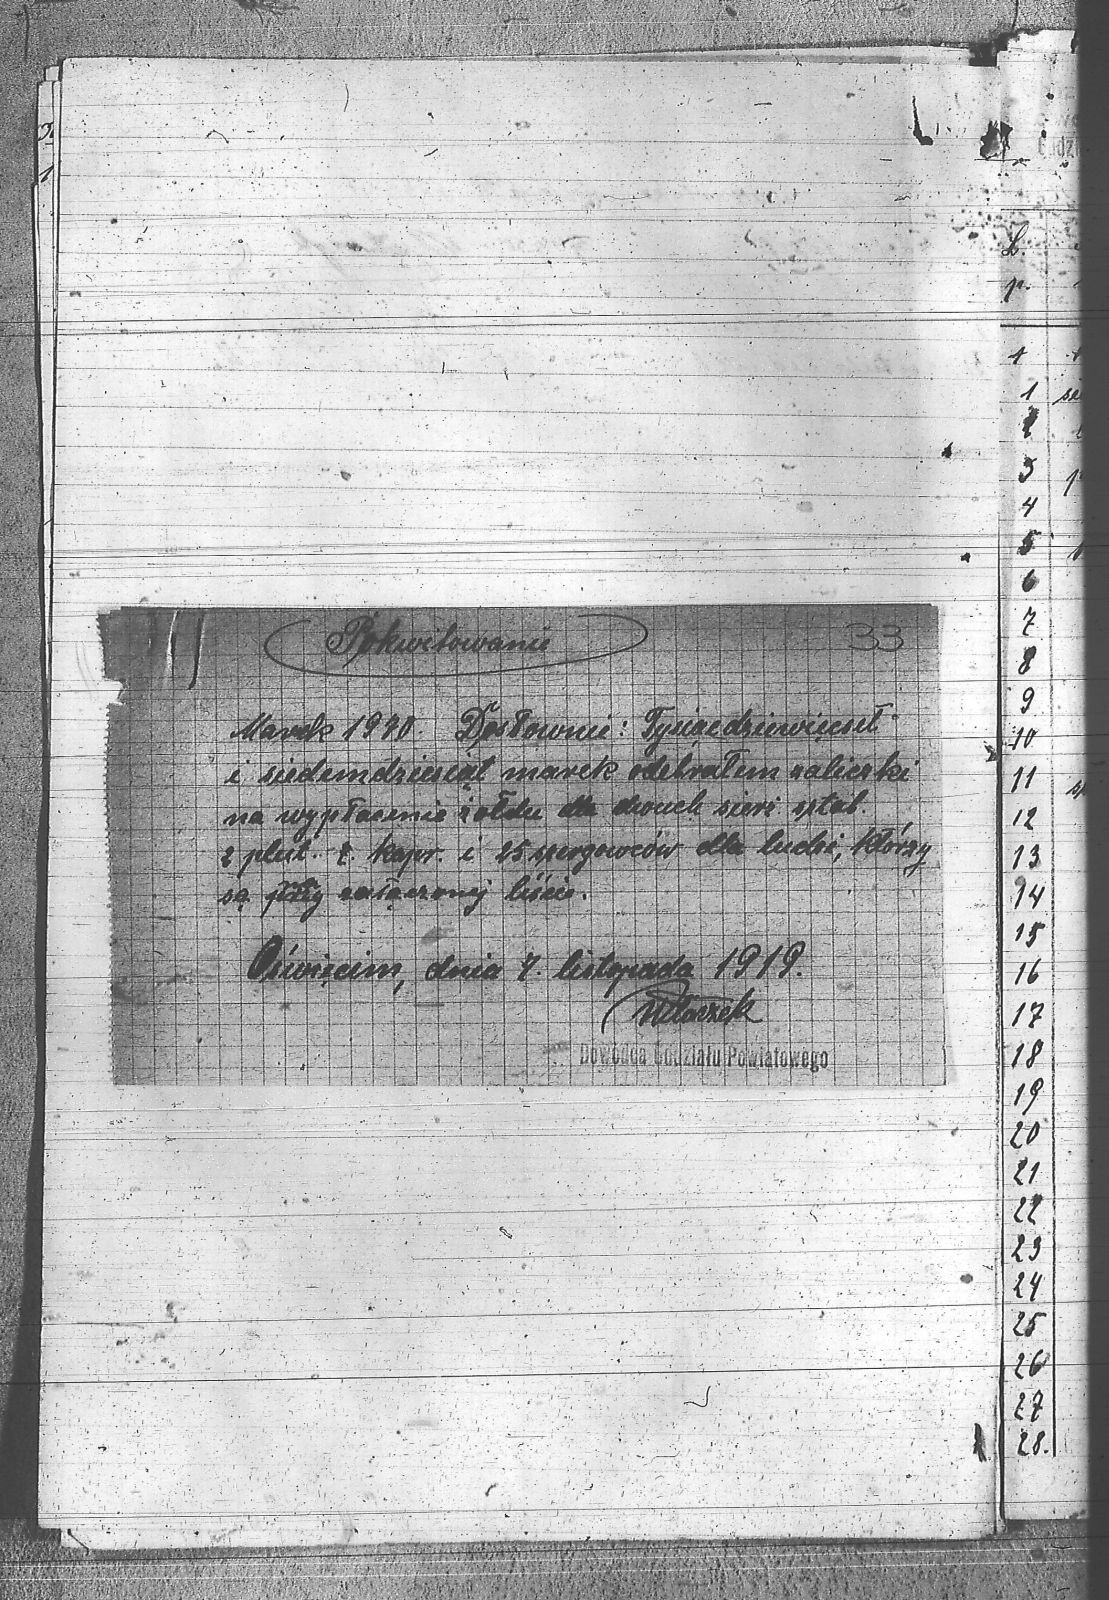 Pokwitowanie
33
Marek 1970. Dosłownie: Tysiącdziewięcset
i siedemdziesiąt marek odebrałem zaliczki
na wypłacenie żołdu dla dwuch sierż sztab.
2 plut. kapr. i 25 szergowców dla ludzi, którzy
są przy załączonej liście.
Oświęcim, dnia 7. listopada 1919.
Dowódca Oddziału Powiatowego
L.
p.
1
2
3
4
5
6
7
8
9
10
11
12
13
14
15
16
17
18
19
20
21
22
23
24
25
26
27
28.